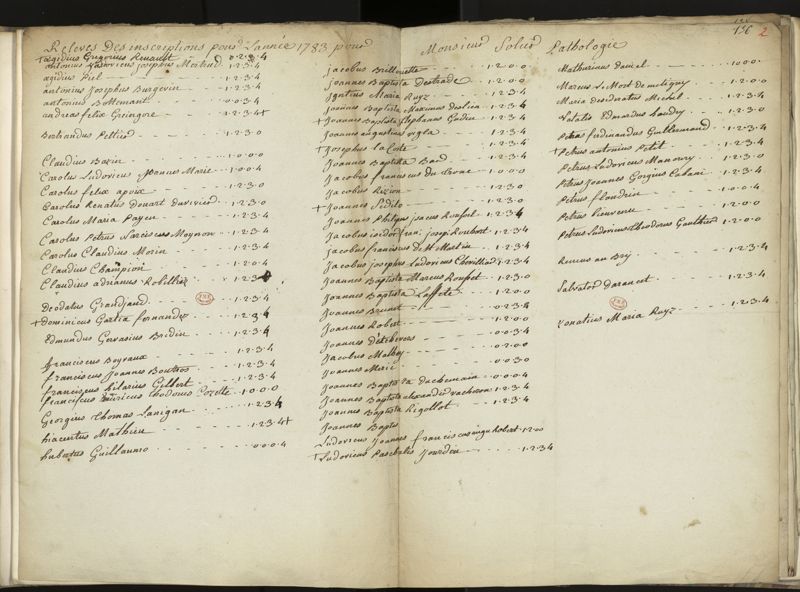 Relevés Des inscriptions pour L'année 1783 pour Monsieur Solier Pathologie
156 2
+ ægidius Gregorius Renault 0.2.3.4
antonius Ludovicus josephus 1.2.3.4
ægidius Kiel 1.2.3.4
antonius Josephus Burgevin 1.2.3.4
antonius Bottemant 0.0.3.4
andreas felix Greingore 1.2.3.4+
Bertrandus Peltier 1.2.3.0
Claudius Bazin 1.0.0.0
Carolus Ludovicus Joannus Marie 1.0.0.4
Carolus felix 1.2.3.0
Carolus Renatus Donart 1.2.3.0
Carolus Maria Payen 1.2.3.4
Carolus Petrus Narcissus Moynon 1.2.3.4
Carolus Claudius Morin 1.2.3.4
Claudius Champion 1.2.0.4
Claudius adrianus Robillier 1.2.3
Deodatus Grandjand 1.2.3.4
+ dominicus Gartia fernandez 1.2.3.4
Edmundus Gervasius Bridin 1.2.3.4
franciscus Boyraux 1.2.3.4
franciscus Joannes Boutros 1.2.3.4
franciscus hilarius Gilbert 1.2.3.4
franciscus thodorus Cozette 1.0.0.0
Georgius Thomas Lanigan 1.2.3.4
hiacentus Mathieu 1.2.3.4+
hubertus Guillaumo 0.0.0.4
Jacobus Brillouette 1.2.0.0
Joannes Baptista Destrade 1.2.0.0
Ignatius Maria Ruyz 1.2.3.4
Joannes Baptista Maximus Deslin 1.2.3.4
+ Joannes Baptista Stephanus Gardien 1.2.3.4
Joannes augustinus vigla 1.2.3.4
+ Josephus la Coste 1.2.3.4
Joannes Baptista Baud 1.2.3.4
Jacobus franciscus du trone 1.0.0.0
Jacobus Rezion 1.2.3.0
+ Joannes Sedillo 1.2.3.0
Joannes Philipus Jacus Roussel 1.2.3.4
Jacobus isidor Roubert 1.2.3.4
Jacobus franciscus D. M. Martin 1.2.3.4
Jacobus josephus Ludovicus Chevillard 1.2.3.4
Joannes Baptista Marcus Rousset 1.2.3.0
Joannes Baptista Laffete 1.2.0.0
Joannes Brunet 0.2.3.4
Joannes Robert 1.2.0.0
Joannes 0.0.3.4
Jacobus Malhey 0.2.0.0
Joannes Marie 0.0.3.0
Joannes Baptista dachemain 0.0.0.4
Joannes Baptista alexander vacheron 1.2.3.4
Joannes Baptista Rigollot 1.2.3.4
Joannes Baptis
Ludovicus Joannes franciscus Robert 1.2.00
+ Ludovicus Paschalis Jourdin 1.2.3.4
Mathurinus daniel 1.0.0.0
Marcus Le Mort de metigny 1.2.0.0
Maria desideratus Michel 1.2.3.4
Natalis Edmundus baudry 1.2.3.0
Petrus ferdinandus Guillermond 1.2.3.4
+ Petrus antonius Petit 1.2.3.4
Petrus Ludovicus Manoury 1.2.3.0
Petrus Joannes Gorgius Cabani 1.2.3.4
Petrus flandrin 1.0.0.4
Petrus Bienvenu 1.2.0.0
Petrus Ludovicus theodorus Gaulthier 1.2.0.0
Remus au Brÿ 1.2.3.4
Salvator darancet 1.2.3.4
Ignatius Maria Ruyz 1.2.3.4